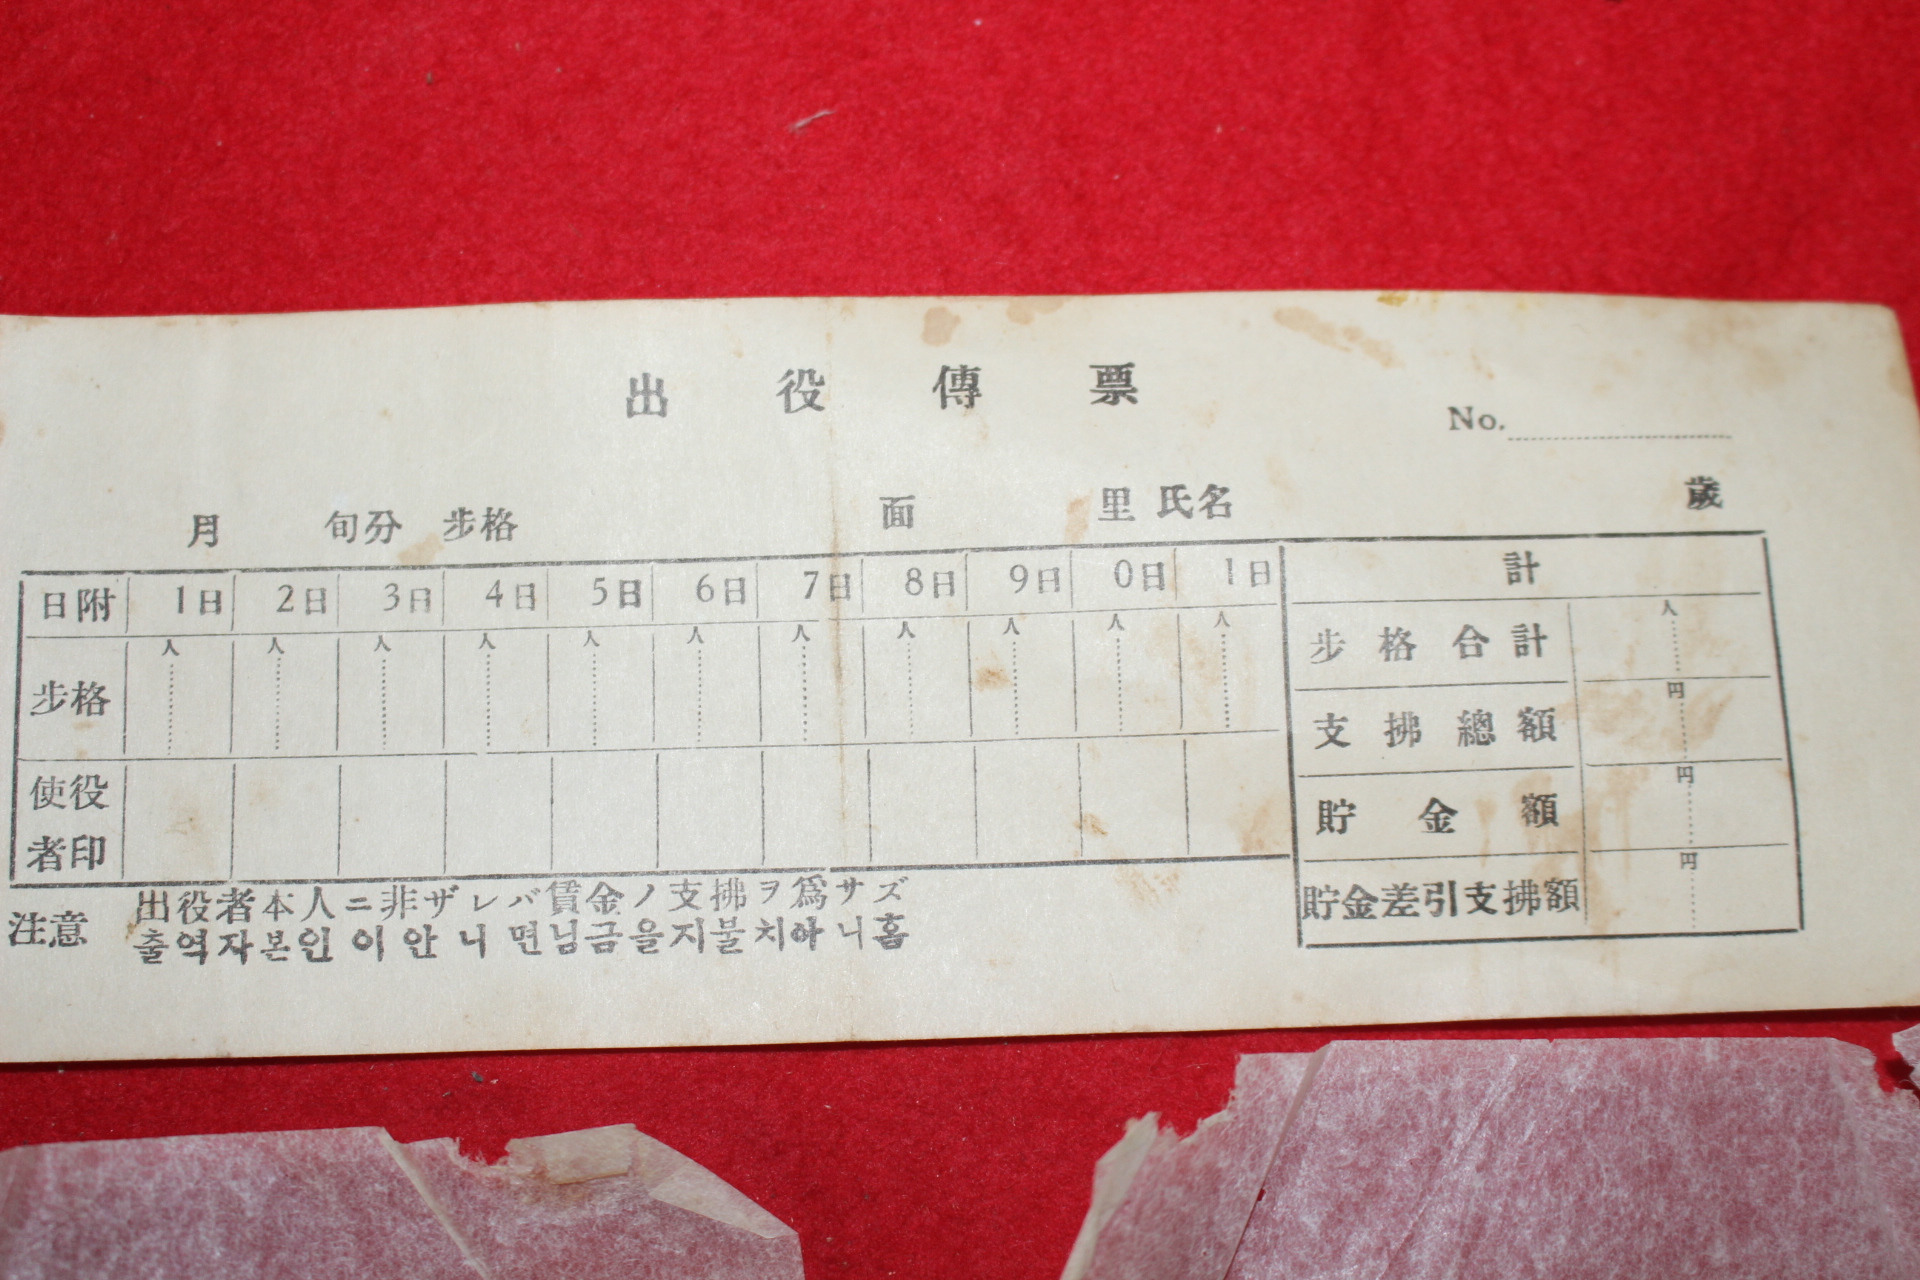 出役傳票
No.
月 旬分 步格 面 里 氏名 歲
日附 1日 2日 3日 4日 5日 6日 7日 8日 9日 0日 1日 計
人 人 人 人 人 人 人 人 人 人 人 人
步格 步格合計
円
支拂總額
円
使役者印 貯金額
円
貯金差引支拂額
注意 出役者本人ニ非ザレバ賃金ノ支拂ヲ爲サズ
출역자본인이안니면님금을지불치아니홈